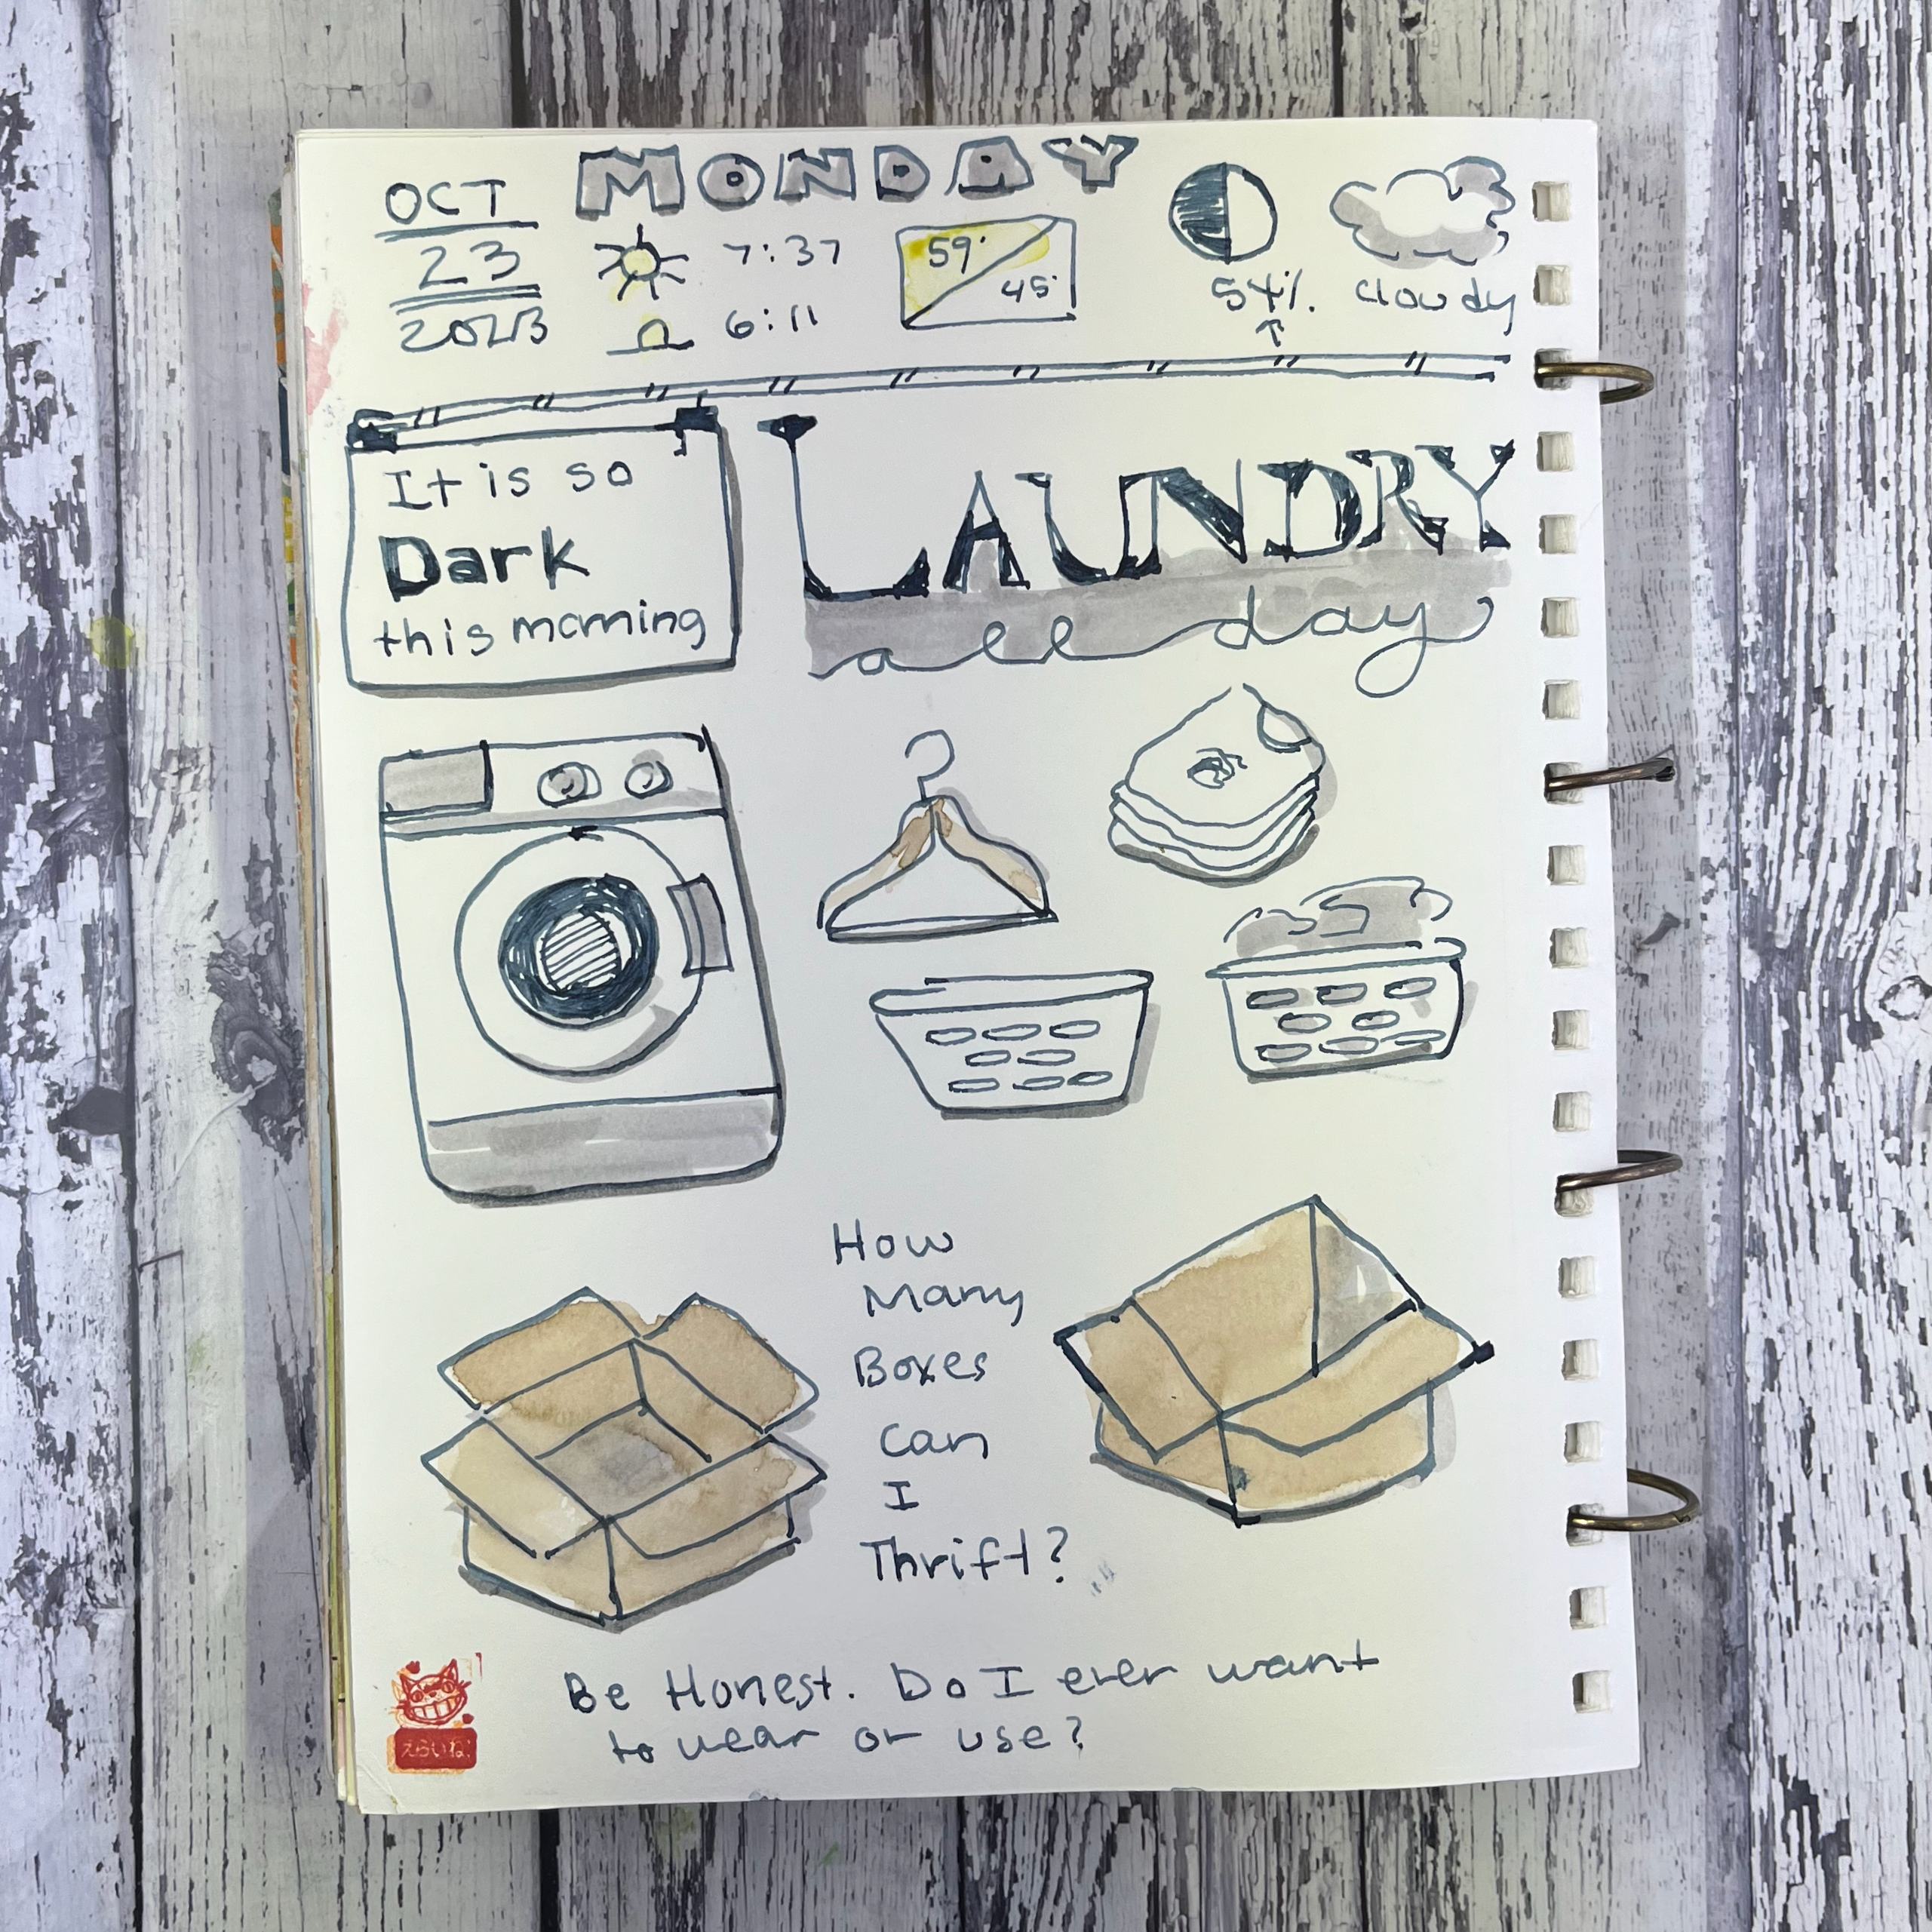 MONDAY
OCT
23
2023
7:37
6:11
59°
45°
54%
cloudy
It is so
Dark
this morning
LAUNDRY
all day
How
Many
Boxes
Can
I
Thrift?
Be Honest. Do I ever want
to wear or use?
えらいね!